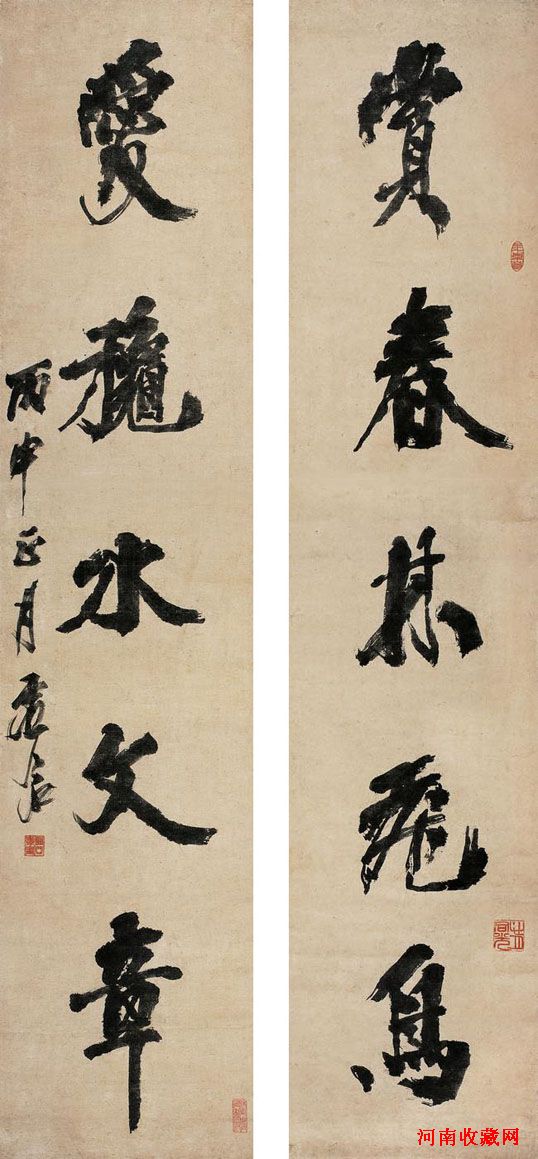 賞春林花鳥
愛穐水文章
丙申正月虛谷
河南收藏网